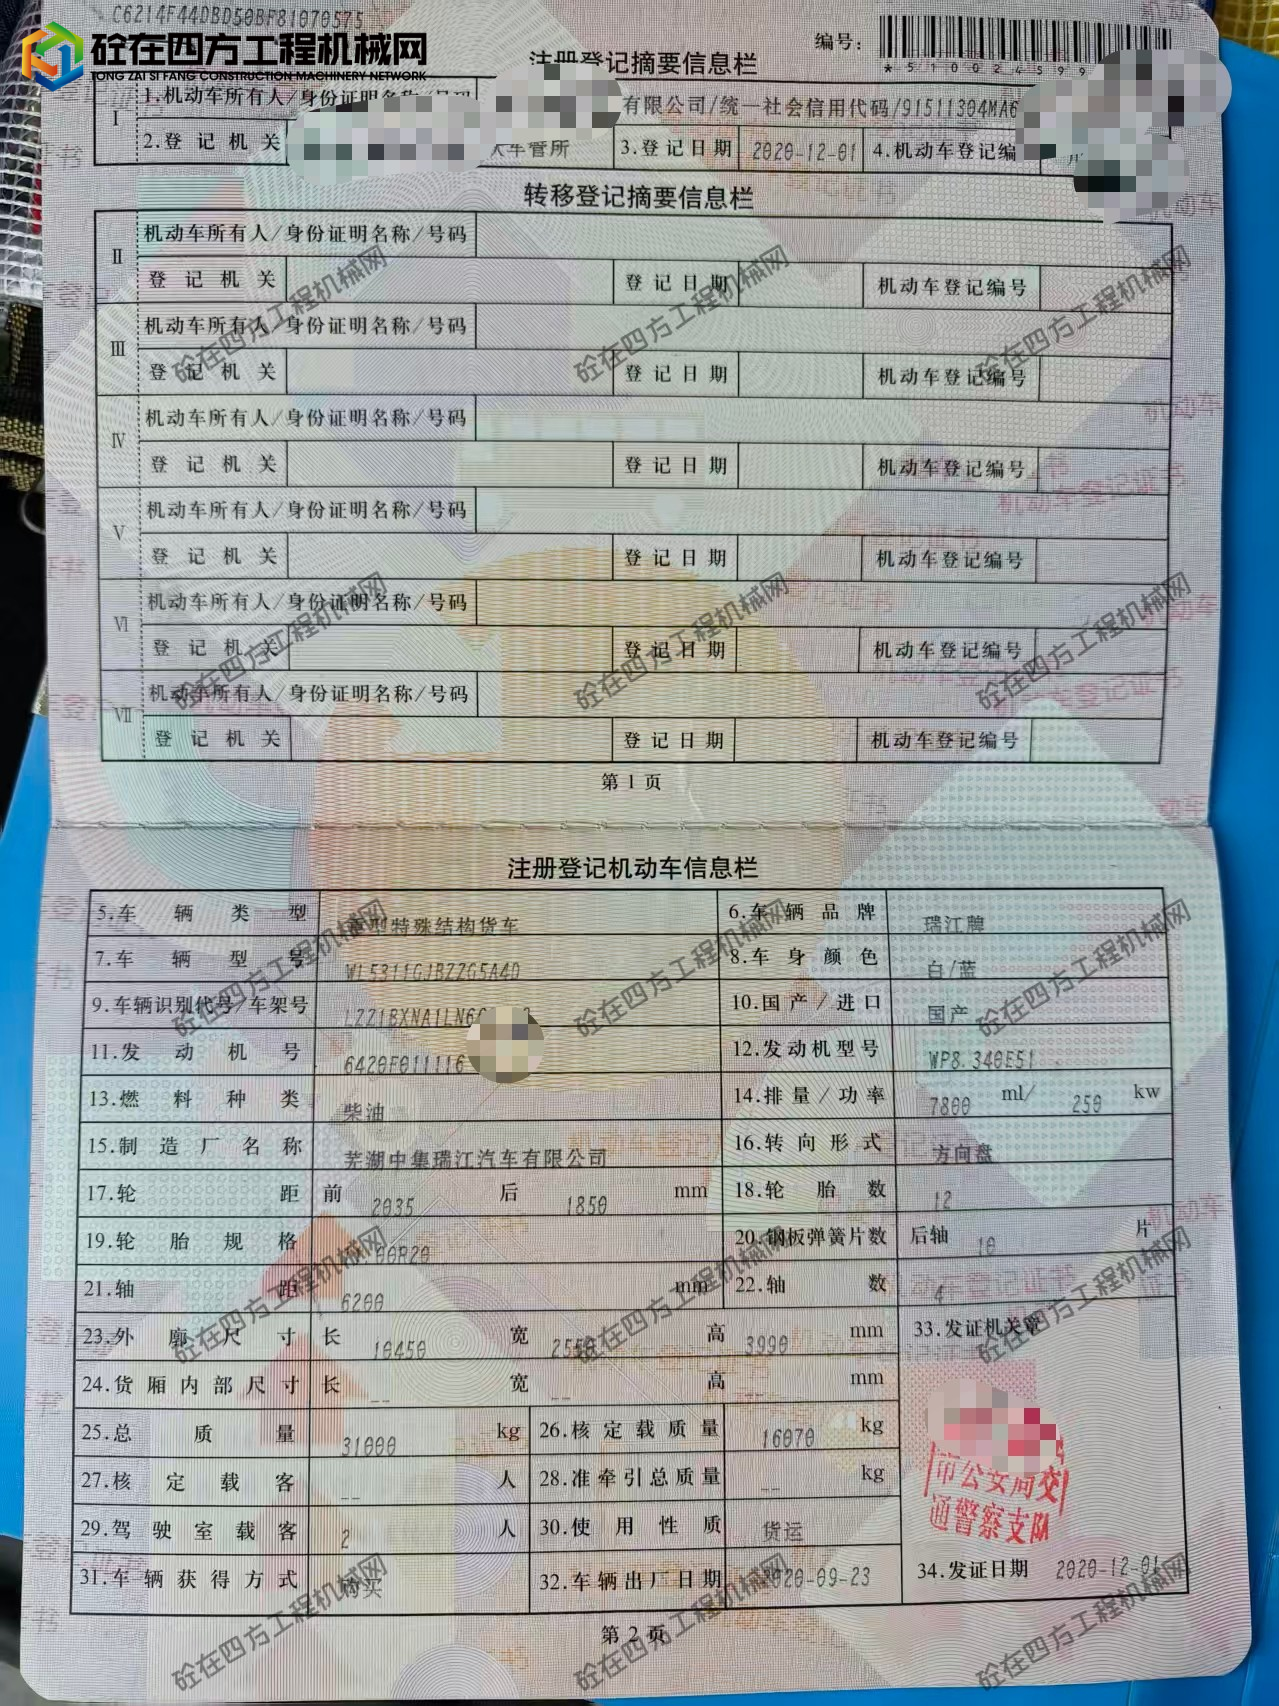 C6214F44DBD50BF81070575
砼在四方工程机械网
TONG ZAI SI FANG CONSTRUCTION MACHINERY NETWORK
注册登记摘要信息栏
编号:
*510024599
I
1.机动车所有人/身份证明名称/号码 有限公司/统一社会信用代码/91511304MA6
2.登记机关 车管所 3.登记日期 2020-12-01 4.机动车登记编
转移登记摘要信息栏
II
机动车所有人/身份证明名称/号码
登记机关 登记日期 机动车登记编号
III
机动车所有人/身份证明名称/号码
登记机关 登记日期 机动车登记编号
IV
机动车所有人/身份证明名称/号码
登记机关 登记日期 机动车登记编号
V
机动车所有人/身份证明名称/号码
登记机关 登记日期 机动车登记编号
VI
机动车所有人/身份证明名称/号码
登记机关 登记日期 机动车登记编号
VII
机动车所有人/身份证明名称/号码
登记机关 登记日期 机动车登记编号
第 1 页
注册登记机动车信息栏
5.车辆类型 重型特殊结构货车 6.车辆品牌 瑞江牌
7.车辆型号 WL5311GJBZZG5A4D 8.车身颜色 白/蓝
9.车辆识别代号/车架号 LZZ1BXNA1LN6 10.国产/进口 国产
11.发动机号 6420F011116 12.发动机型号 WP8.340E51
13.燃料种类 柴油 14.排量/功率 7800 ml/ 250 kw
15.制造厂名称 芜湖中集瑞江汽车有限公司 16.转向形式 方向盘
17.轮距 前 2035 后 1850 mm 18.轮胎数 12
19.轮胎规格 00R20 20.钢板弹簧片数 后轴 10 片
21.轴距 6200 mm 22.轴数 4
23.外廓尺寸 长 10450 宽 2550 高 3990 mm 33.发证机关章
24.货厢内部尺寸 长 -- 宽 -- 高 -- mm
25.总质量 31000 kg 26.核定载质量 16070 kg
27.核定载客 -- 人 28.准牵引总质量 -- kg
市公安局交
通警察支队
29.驾驶室载客 2 人 30.使用性质 货运
31.车辆获得方式 购买 32.车辆出厂日期 2020-09-23 34.发证日期 2020-12-01
第 2 页